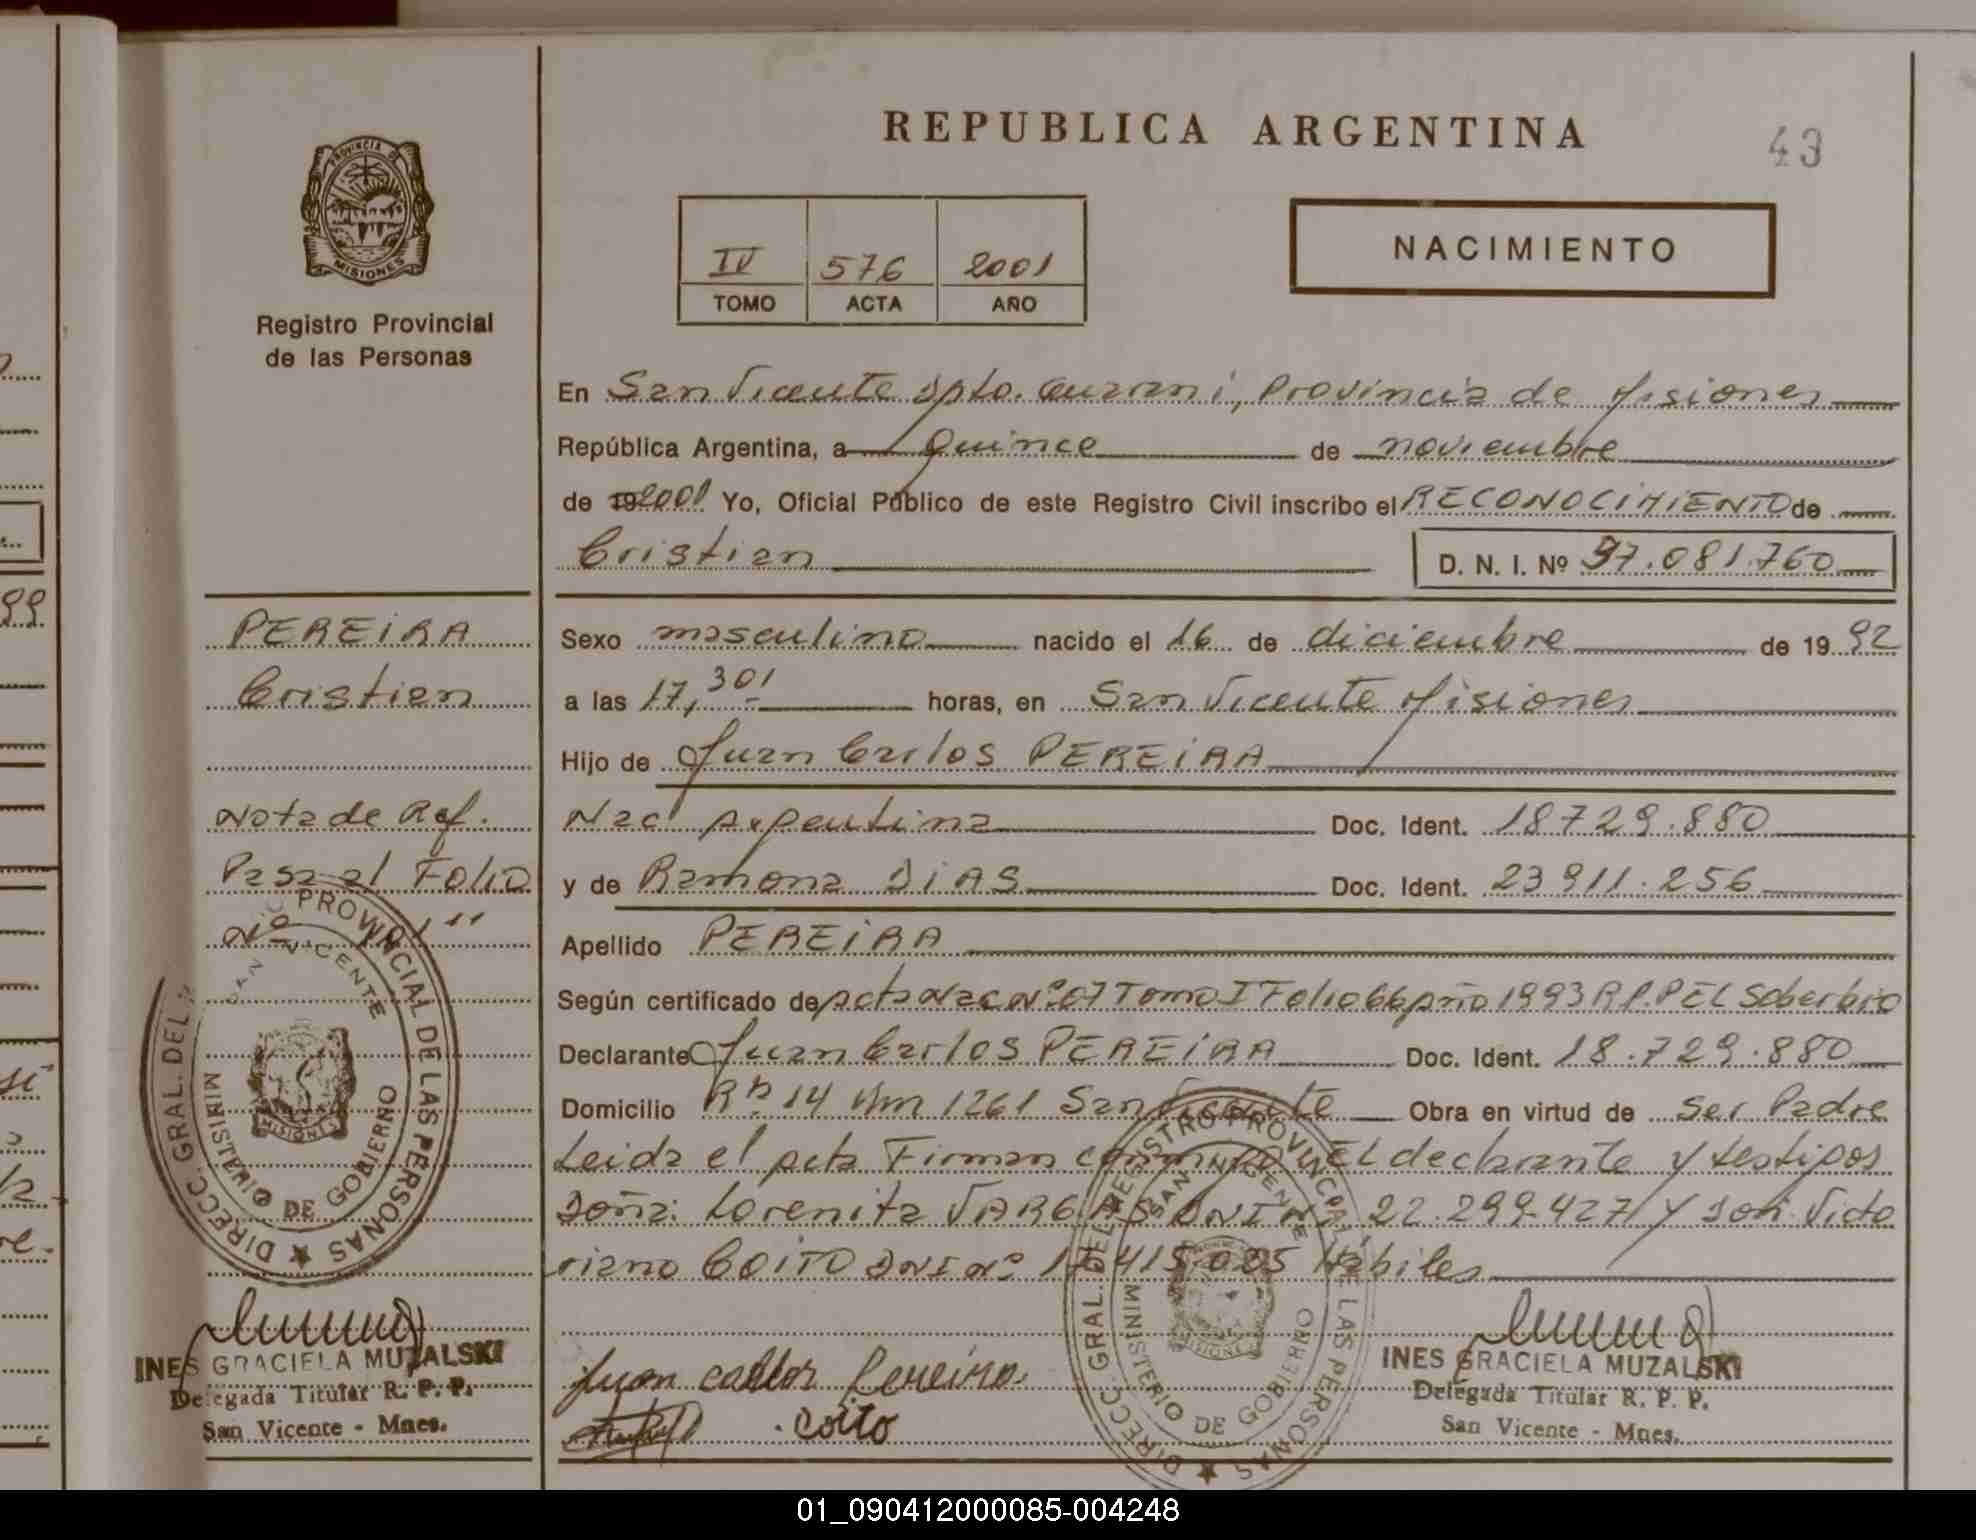 REPUBLICA ARGENTINA
43
PROVINCIA DE
MISIONES
Registro Provincial
de las Personas
IV 576 2001
TOMO ACTA AÑO
NACIMIENTO
En San Vicente Dpto. Guarani, Provincia de Misiones
República Argentina, a Quince de noviembre
de 19 2001 Yo, Oficial Público de este Registro Civil inscribo el RECONOCIMIENTO de
Cristian D. N. I. Nº 37.081.760
PEREIRA
Cristian
Nota de Ref.
Pasa al Folio
Nº 101"
Sexo masculino nacido el 16 de diciembre de 19 92
a las 17,30' horas, en San Vicente Misiones
Hijo de Juan Carlos PEREIRA
Nac Argentina Doc. Ident. 18729.880
y de Ramona DIAS Doc. Ident. 23911.256
Apellido PEREIRA
Según certificado de Acta Nac Nº 07 Tomo I Folio 66 Año 1993 R.P.P EL Soberbio
Declarante Juan Carlos PEREIRA Doc. Ident. 18.729.880
Domicilio Rta 14 Km 1261 San Vicente Obra en virtud de ser Padre
Leida el Acta Firman conmigo EL declarante y testigos
Doña: Lorenita VARGAS DNI Nº 22.299.427 / Y Don Victo
riano COITO DNI Nº 17.415.025 Hábiles
DIRECC. GRAL. DEL REGISTRO PROVINCIAL DE LAS PERSONAS
SAN VICENTE
MISIONES
MINISTERIO DE GOBIERNO
INES GRACIELA MUZALSKI
Delegada Titular R. P. P.
San Vicente - Mnes.
Juan Carlos Pereira
Coito
DIRECC. GRAL. DEL REGISTRO PROVINCIAL DE LAS PERSONAS
SAN VICENTE
MISIONES
MINISTERIO DE GOBIERNO
INES GRACIELA MUZALSKI
Delegada Titular R. P. P.
San Vicente - Mnes.
01_090412000085-004248